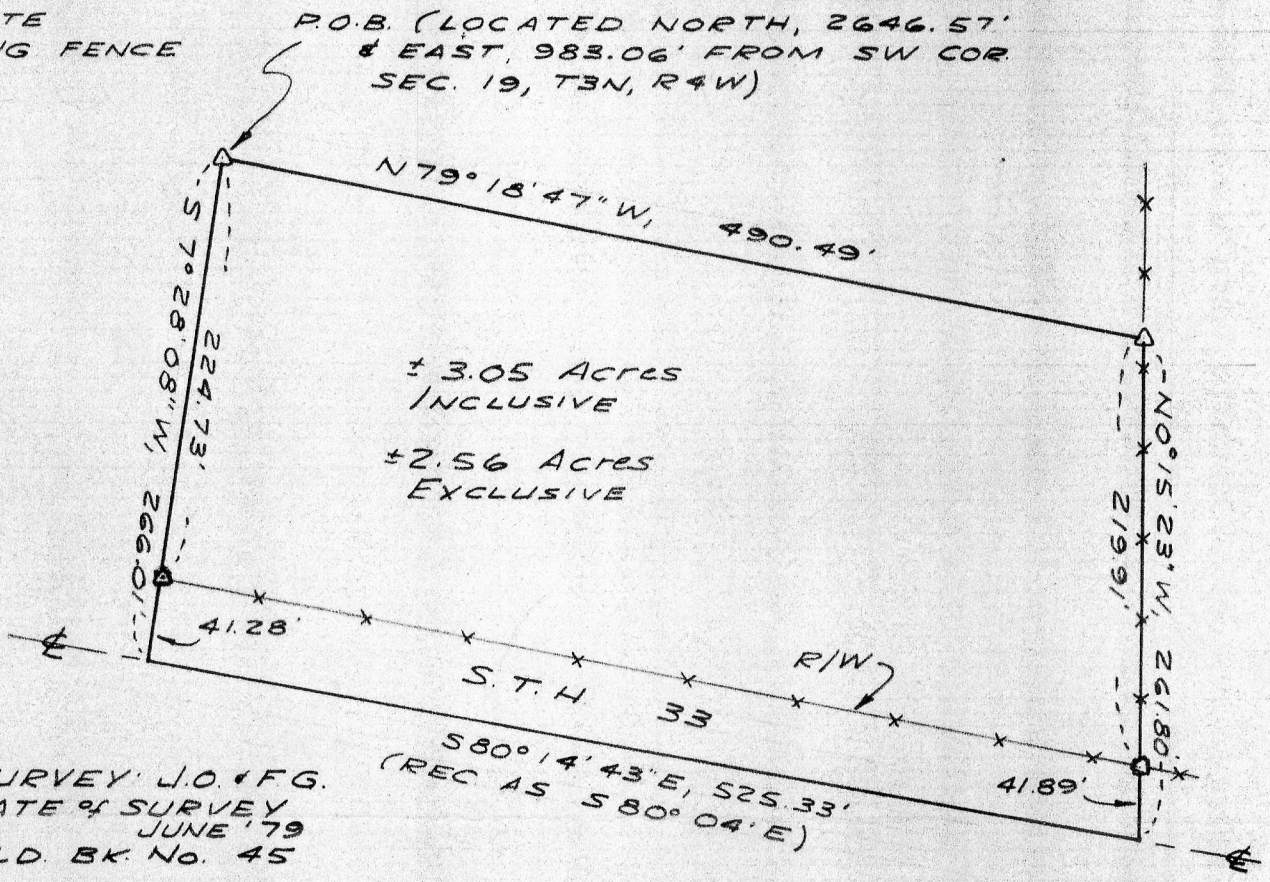 TE
G FENCE
P.O.B. (LOCATED NORTH, 2646.57'
& EAST, 983.06' FROM SW COR.
SEC. 19, T3N, R4W)
N 79° 18' 47" W, 490.49'
S 7° 28' 08" W, 266.01'
224.73'
± 3.05 Acres
INCLUSIVE
±2.56 Acres
EXCLUSIVE
N 0° 15' 23" W, 261.80'
219.91'
41.28'
R/W
S.T.H. 33
S 80° 14' 43" E, 525.33'
(REC AS S 80° 04' E)
41.89'
URVEY J.O. & F.G.
ATE of SURVEY
JUNE '79
LD. BK. No. 45